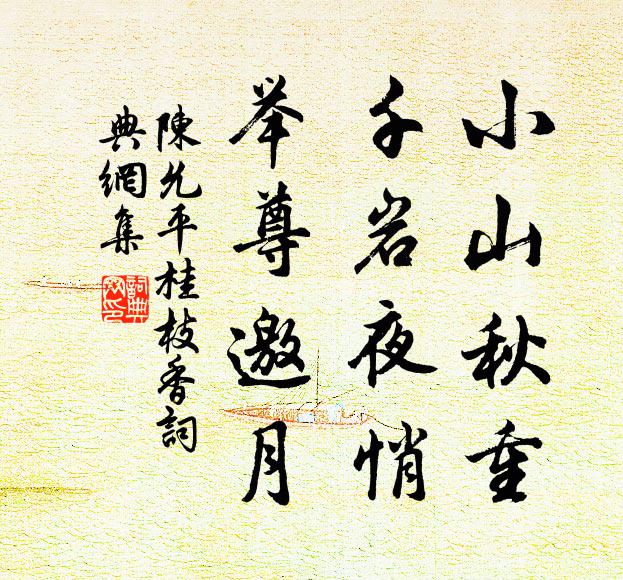 小山秋重
千岩夜悄
举尊邀月
陳允平桂枝香詞
典網集
詞典